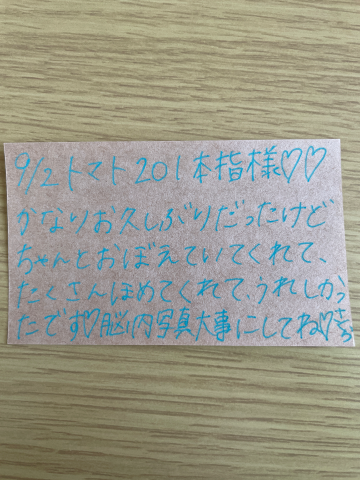 9/2トマト201本指様♡♡
かなりお久しぶりだったけど
ちゃんとおぼえていてくれて、
たくさんほめてくれて、うれしかっ
たです♡脳内写真大事にしてね♡